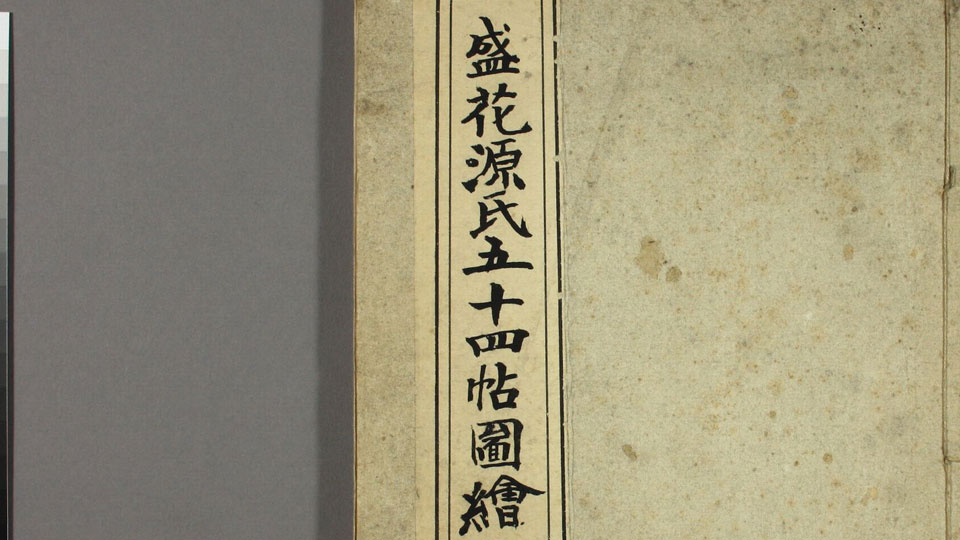 盛花源氏五十四帖圖繪